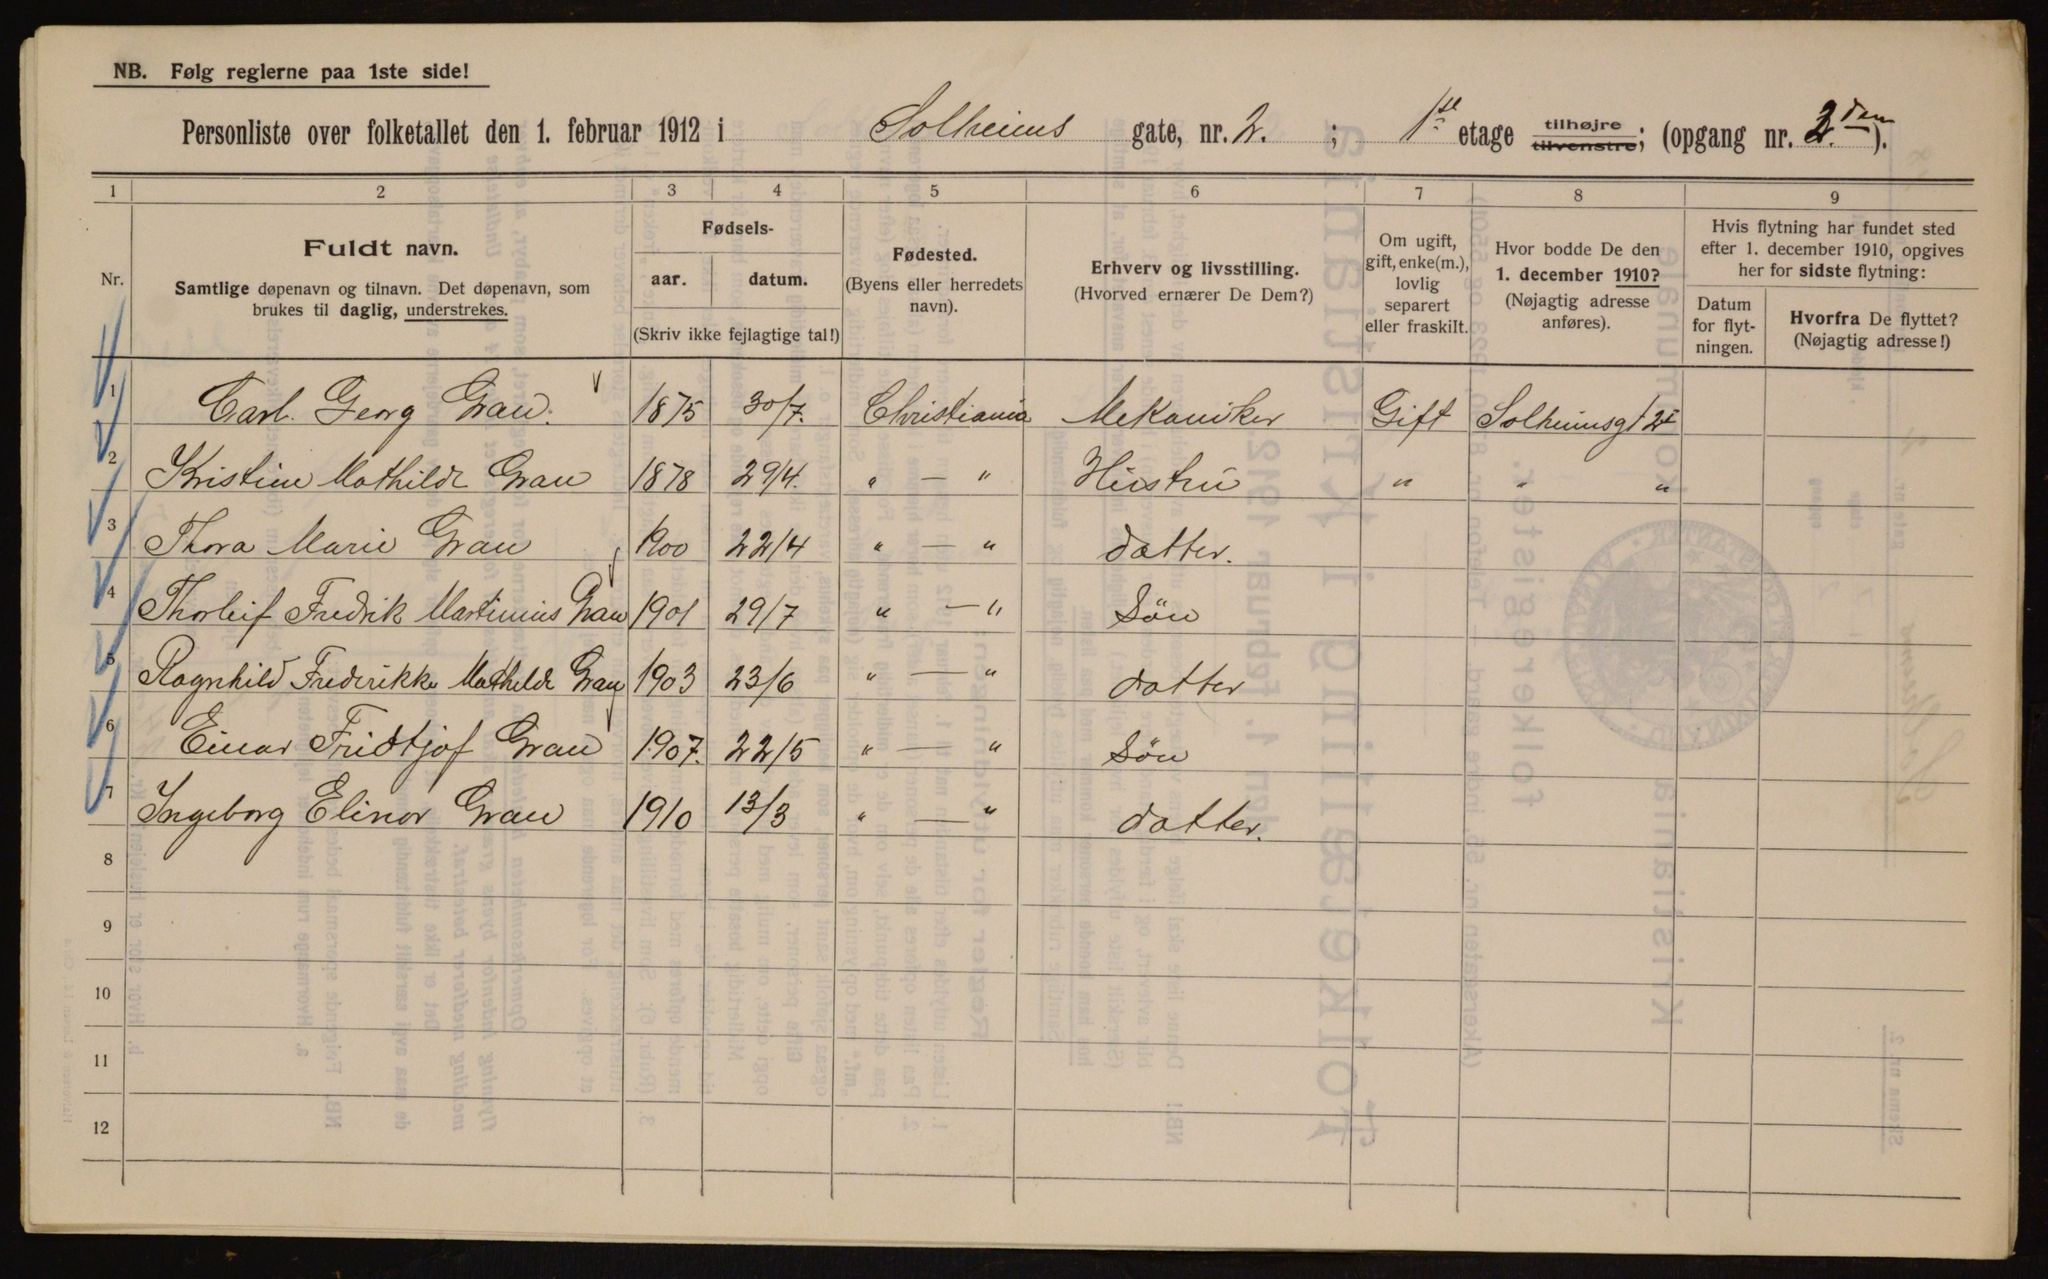 NB. Følg reglerne paa 1ste side!
Personliste over folketallet den 1. februar 1912 i Solheims gate, nr. 2. ; 1ste etage tilhøjre tilvenstre; (opgang nr. 2. den).
1 2 3 4 5 6 7 8 9
Nr.
Fuldt navn.
Samtlige døpenavn og tilnavn. Det døpenavn, som
brukes til daglig, understrekes.
Fødsels-
aar. datum.
(Skriv ikke fejlagtige tal!)
Fødested.
(Byens eller herredets
navn).
Erhverv og livsstilling.
(Hvorved ernærer De Dem?)
Om ugift,
gift, enke(m.),
lovlig
separert
eller fraskilt.
Hvor bodde De den
1. december 1910?
(Nøjagtig adresse
anføres).
Hvis flytning har fundet sted
efter 1. december 1910, opgives
her for sidste flytning:
Datum
for flyt-
ningen.
Hvorfra De flyttet?
(Nøjagtig adresse!)
1 Carl. Georg Grau. 1875 30/7. Christiania Mekaniker Gift Solheimsgt 2 I
2 Kristine Mathilde Grau 1878 29/4. " — " Hustru " " "
3 Thora Marie Grau 1900 22/4 " — " datter.
4 Thorleif Fredrik Martinius Grau 1901 29/7 " — " Søn
5 Ragnhild Frederikke Mathilde Grau 1903 23/6 " — " datter
6 Einar Fridtjof Grau 1907. 22/5 " — " Søn
7 Ingeborg Elinor Grau 1910 13/3 " — " datter.
8
9
10
11
12